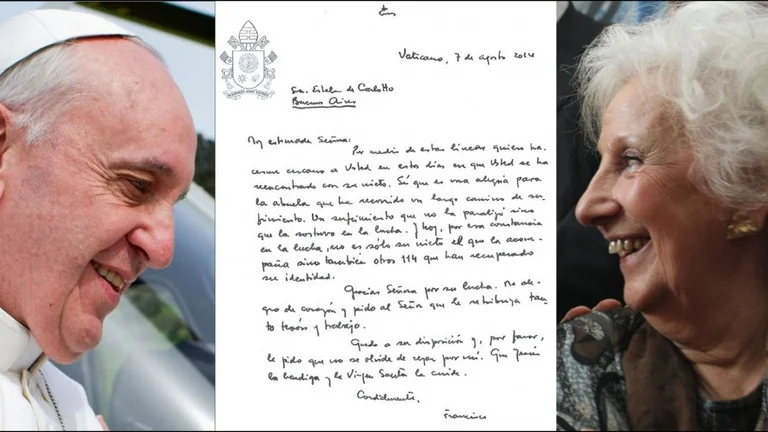 Vaticano, 7 de agosto 2014
Sra. Estela de Carlotto
Buenos Aires
My estimada Señora:
Por medio de estas líneas quiero ha-
cerme cercano a Usted en estos días en que Usted se ha
reencontrado con su nieto. Sé que es una alegría para
la abuela que ha recorrido un largo camino de su-
frimiento. Un sufrimiento que no la paralizó sino
que la sostuvo en la lucha. Y hoy, por esa constancia
en la lucha, no es sólo su nieto el que la acom-
paña sino también otros 114 que han recuperado
su identidad.
Gracias Señora por su lucha. Me ale-
gro de corazón y pido al Señor que le retribuya tan-
to tesón y trabajo.
Quedo a su disposición y, por favor,
le pido que no se olvide de rezar por mí. Que Jesús
la bendiga y la Virgen Santa la cuide.
Cordialmente,
Francisco